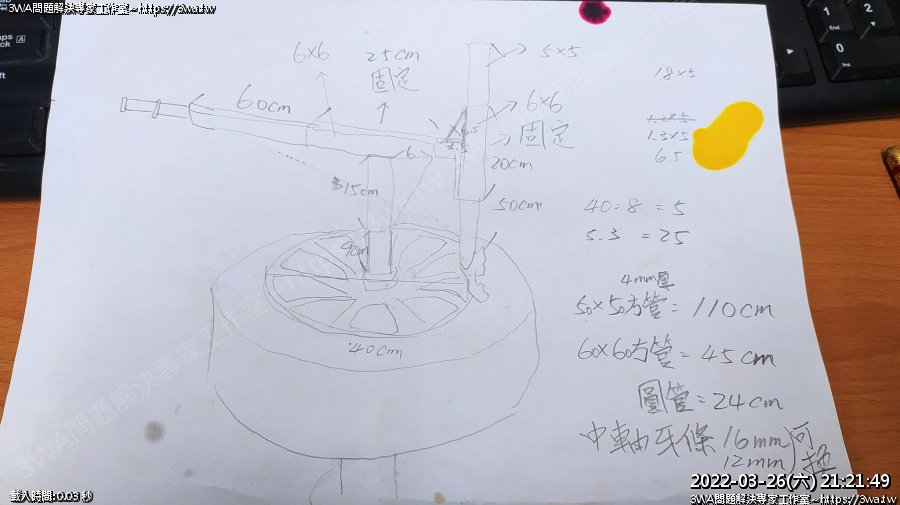 3WA問題解決專家工作室~https://3wa.tw
6×6
25cm
固定
5×5
60cm
6×6
固定
6.5
3.5
6
20cm
15cm
50cm
9cm
40cm
18×5
1.2×5
1.3×5
6.5
40÷8=5
5.3=25
4mm厚
50×50方管=110cm
60×60方管=45cm
圓管=24cm
中軸牙條 16mm
12mm
可換
載入時間: 0.03 秒
2022-03-26(六) 21:21:49
3WA問題解決專家工作室~https://3wa.tw